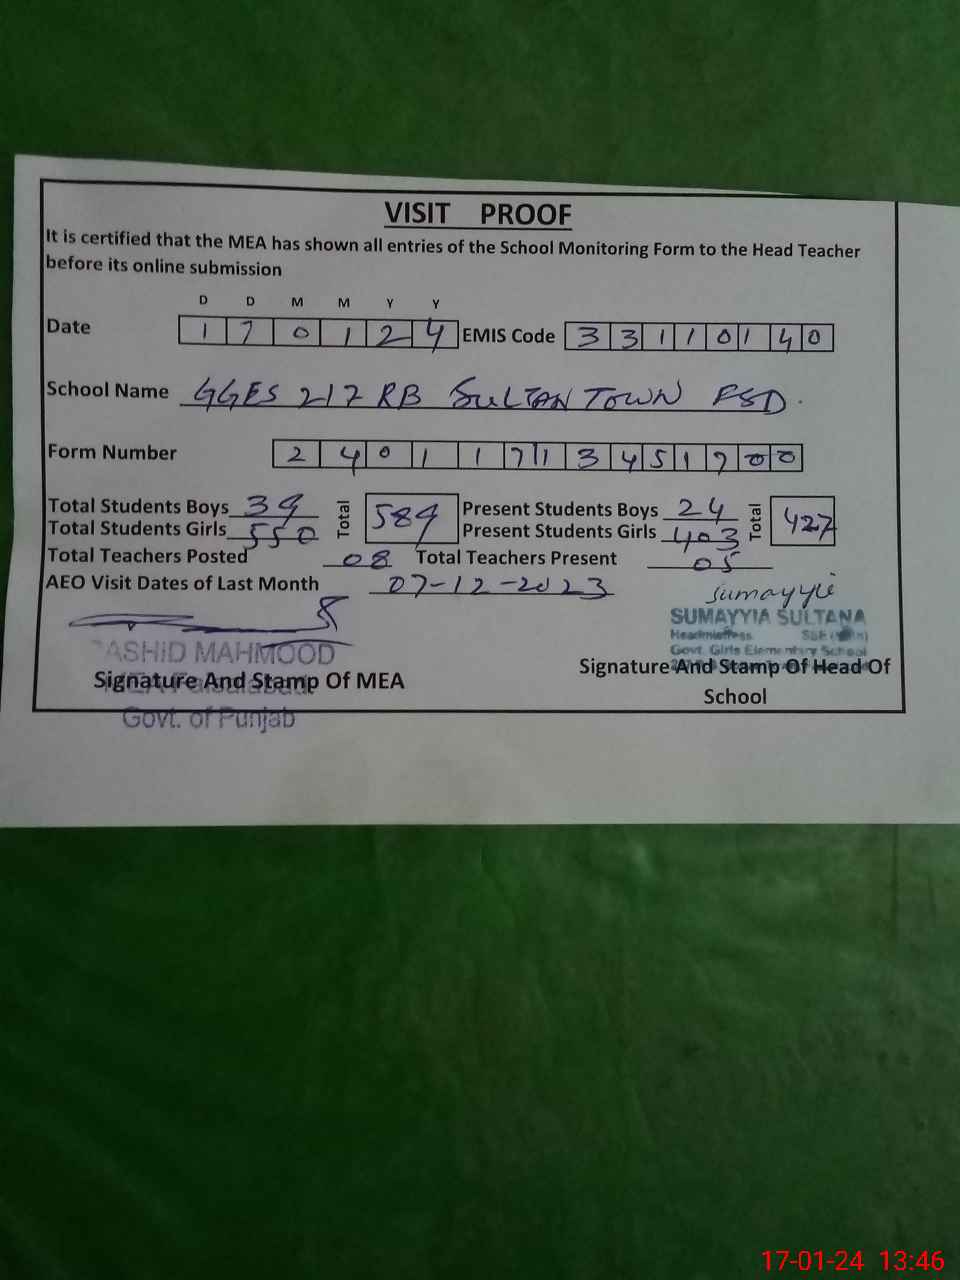 VISIT PROOF
It is certified that the MEA has shown all entries of the School Monitoring Form to the Head Teacher
before its online submission
D D M M Y Y
Date 1 7 0 1 2 4 EMIS Code 3 3 1 1 0 1 4 0
School Name GGES 217 RB SULTAN TOWN FSD.
Form Number 2 4 0 1 1 7 1 3 4 5 1 7 0 0
Total Students Boys 39 Total 589 Present Students Boys 24 Total 427
Total Students Girls 550 Present Students Girls 403
Total Teachers Posted 08 Total Teachers Present 05
AEO Visit Dates of Last Month 07-12-2023
sumayyia
SUMAYYIA SULTANA
Headmistress SSE
Govt. Girls Elementary School
RASHID MAHMOOD
Signature And Stamp Of MEA
Signature And Stamp Of Head Of
School
Govt. of Punjab
17-01-24 13:46